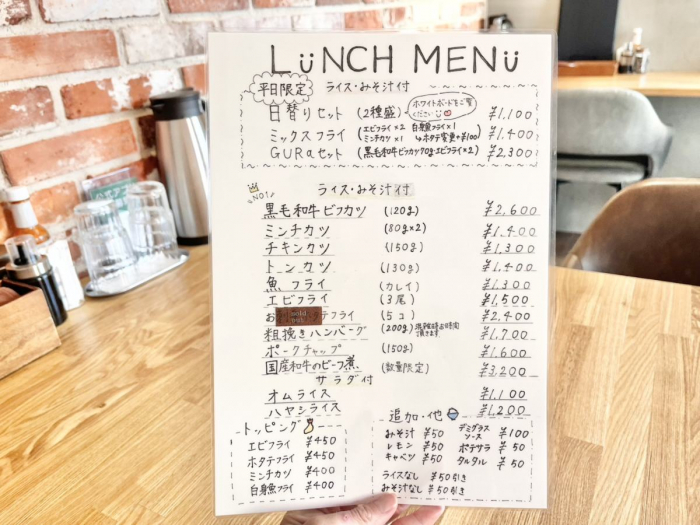 LÜNCH MENÜ
平日限定 ライス・みそ汁付
日替りセット (2種盛)・ ホワイトボードをご覧ください ¥1,100
ミックスフライ (エビフライ×2 白身魚フライ×1 ミンチカツ×1 ↳ホタテ変更+¥100) ¥1,400
GURaセット (黒毛和牛ビフカツ70g エビフライ×2) ¥2,300
NO1 ライス・みそ汁付
黒毛和牛ビフカツ (120g) ¥2,600
ミンチカツ (80g×2) ¥1,400
チキンカツ (150g) ¥1,300
トンカツ (130g) ¥1,400
魚フライ (カレイ) ¥1,300
エビフライ (3尾) ¥1,500
お sold out ホタテフライ (5コ) ¥2,400
粗挽きハンバーグ (200g) ¥1,700
ポークチャップ (150g) ¥1,600
国産和牛のビーフ煮 (数量限定) ¥3,200
サラダ付
オムライス ¥1,100
ハヤシライス ¥1,200
トッピング
エビフライ ¥450
ホタテフライ ¥450
ミンチカツ ¥400
白身魚フライ ¥400
追加・他
みそ汁 ¥50 デミグラスソース ¥100
レモン ¥50 ポテサラ ¥50
キャベツ ¥50 タルタル ¥50
ライスなし ¥50引き
みそ汁なし ¥50引き